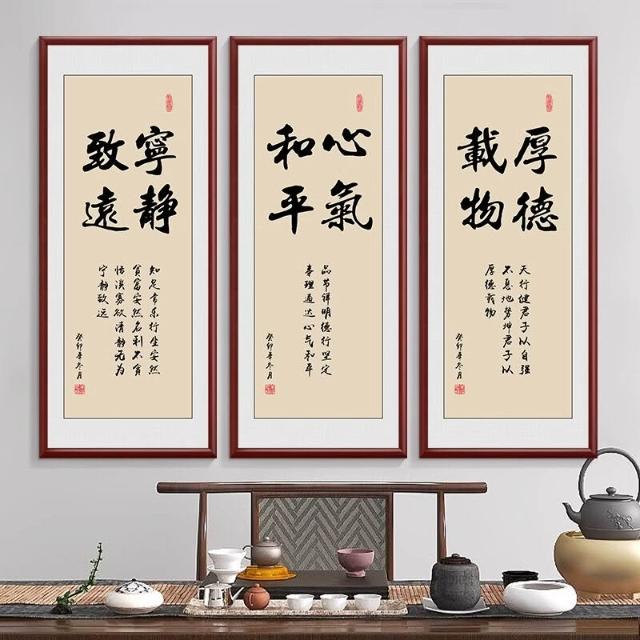 寧静
致遠
知足常乐行坐安然
貧富安然名利不貪
恬淡寡欲清静无为
宁静致远
癸卯年冬月
心氣
和平
品节详明德行坚定
事理通达心气和平
癸卯年冬月
厚德
載物
天行健君子以自强
不息地势坤君子以
厚德载物
癸卯年冬月